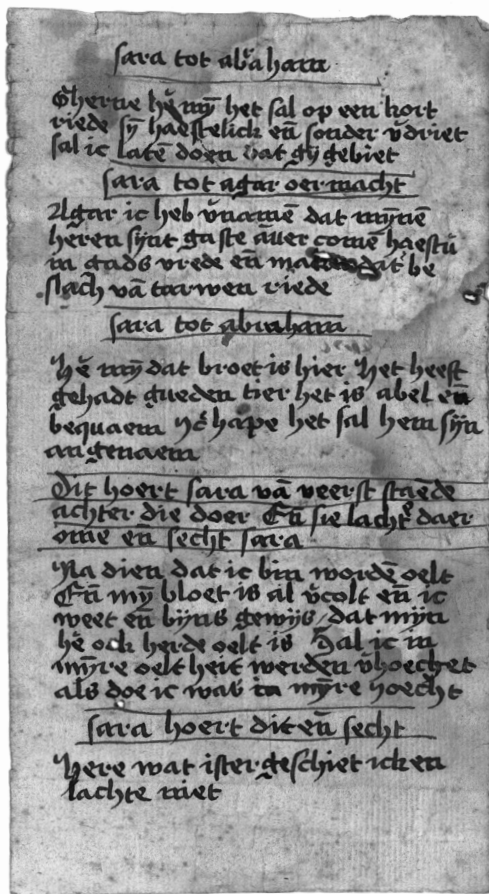 sara tot abrahan
Gherne hē mȳ het sal op een kort
riede sȳ haestelick en̄ sonder v̄driet
sal ic latē doen dat gij gebiet
sara tot agar oer macht
Agar ic heb v̄namē dat mȳnē
hēren sijnt gaste āuer comē haestū
in gads vrede en̄ dat be
slach vā tarwen riede
sara tot abraham
Hē mȳ dat broet is hier Het heeft
gehadt gueden tier het is abel en̄
bequaem Ic hape het sal hem sijn
angenaem
Dit hoert sara vā veerst staēde
achter die doer En̄ sie lacht daer
ome en̄ secht sara
Na dien dat ic bin wordē oelt
En̄ mȳ bloet is al v̄colt en̄ ic
weet en̄ bijns gewijs / dat mijn
hē ock herde oelt is Sal ic in
mȳre oelt heit werden v̄hoechet
als doe ic was in mȳre yoecht
sara hoert dit en̄ secht
Here wat ister geschiet ick en
lachte niet